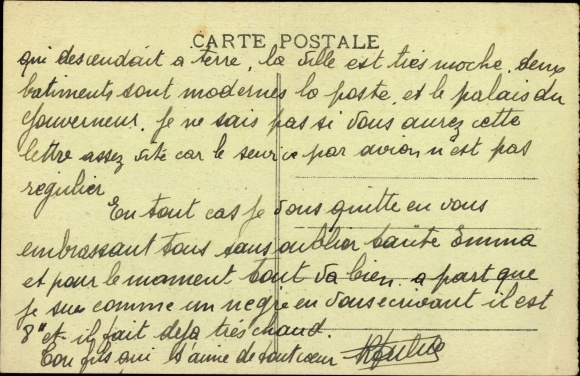 CARTE POSTALE
qui descendait a terre, la ville est très moche. deux
batiments sont modernes la poste, et le palais du
Gouverneur. Je ne sais pas si vous aurez cette
lettre assez vite car le service par avion n'est pas
régulier
En tout cas je vous quitte en vous
embrassant tous sans oublier tante Emma
et pour le moment tout va bien. a part que
je sue comme un negre en vous ecrivant il est
8h et il fait deja très chaud.
Ton fils qui t'aime de tout cœur